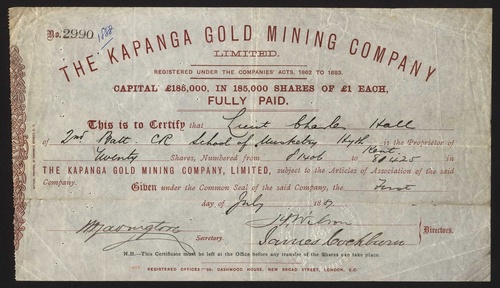 No. 2990 1888
THE KAPANGA GOLD MINING COMPANY
LIMITED.
REGISTERED UNDER THE COMPANIES' ACTS, 1862 TO 1883.
CAPITAL £185,000, IN 185,000 SHARES OF £1 EACH,
FULLY PAID.
This is to Certify that Lieut Charles Hall
of 2nd Batt. School of Musketry Hythe Kent. is the Proprietor of
Twenty Shares, Numbered from 81406 to 81425 in
THE KAPANGA GOLD MINING COMPANY, LIMITED, subject to the Articles of Association of the said
Company.
Given under the Common Seal of the said Company, the First
day of July 188
Secretary.
J. Wilson
James Cockburn
Directors.
N.B.—This Certificate must be left at the Office before any transfer of the Shares can take place.
REGISTERED OFFICES CASHWOOD HOUSE, NEW BROAD STREET, LONDON, E.C.